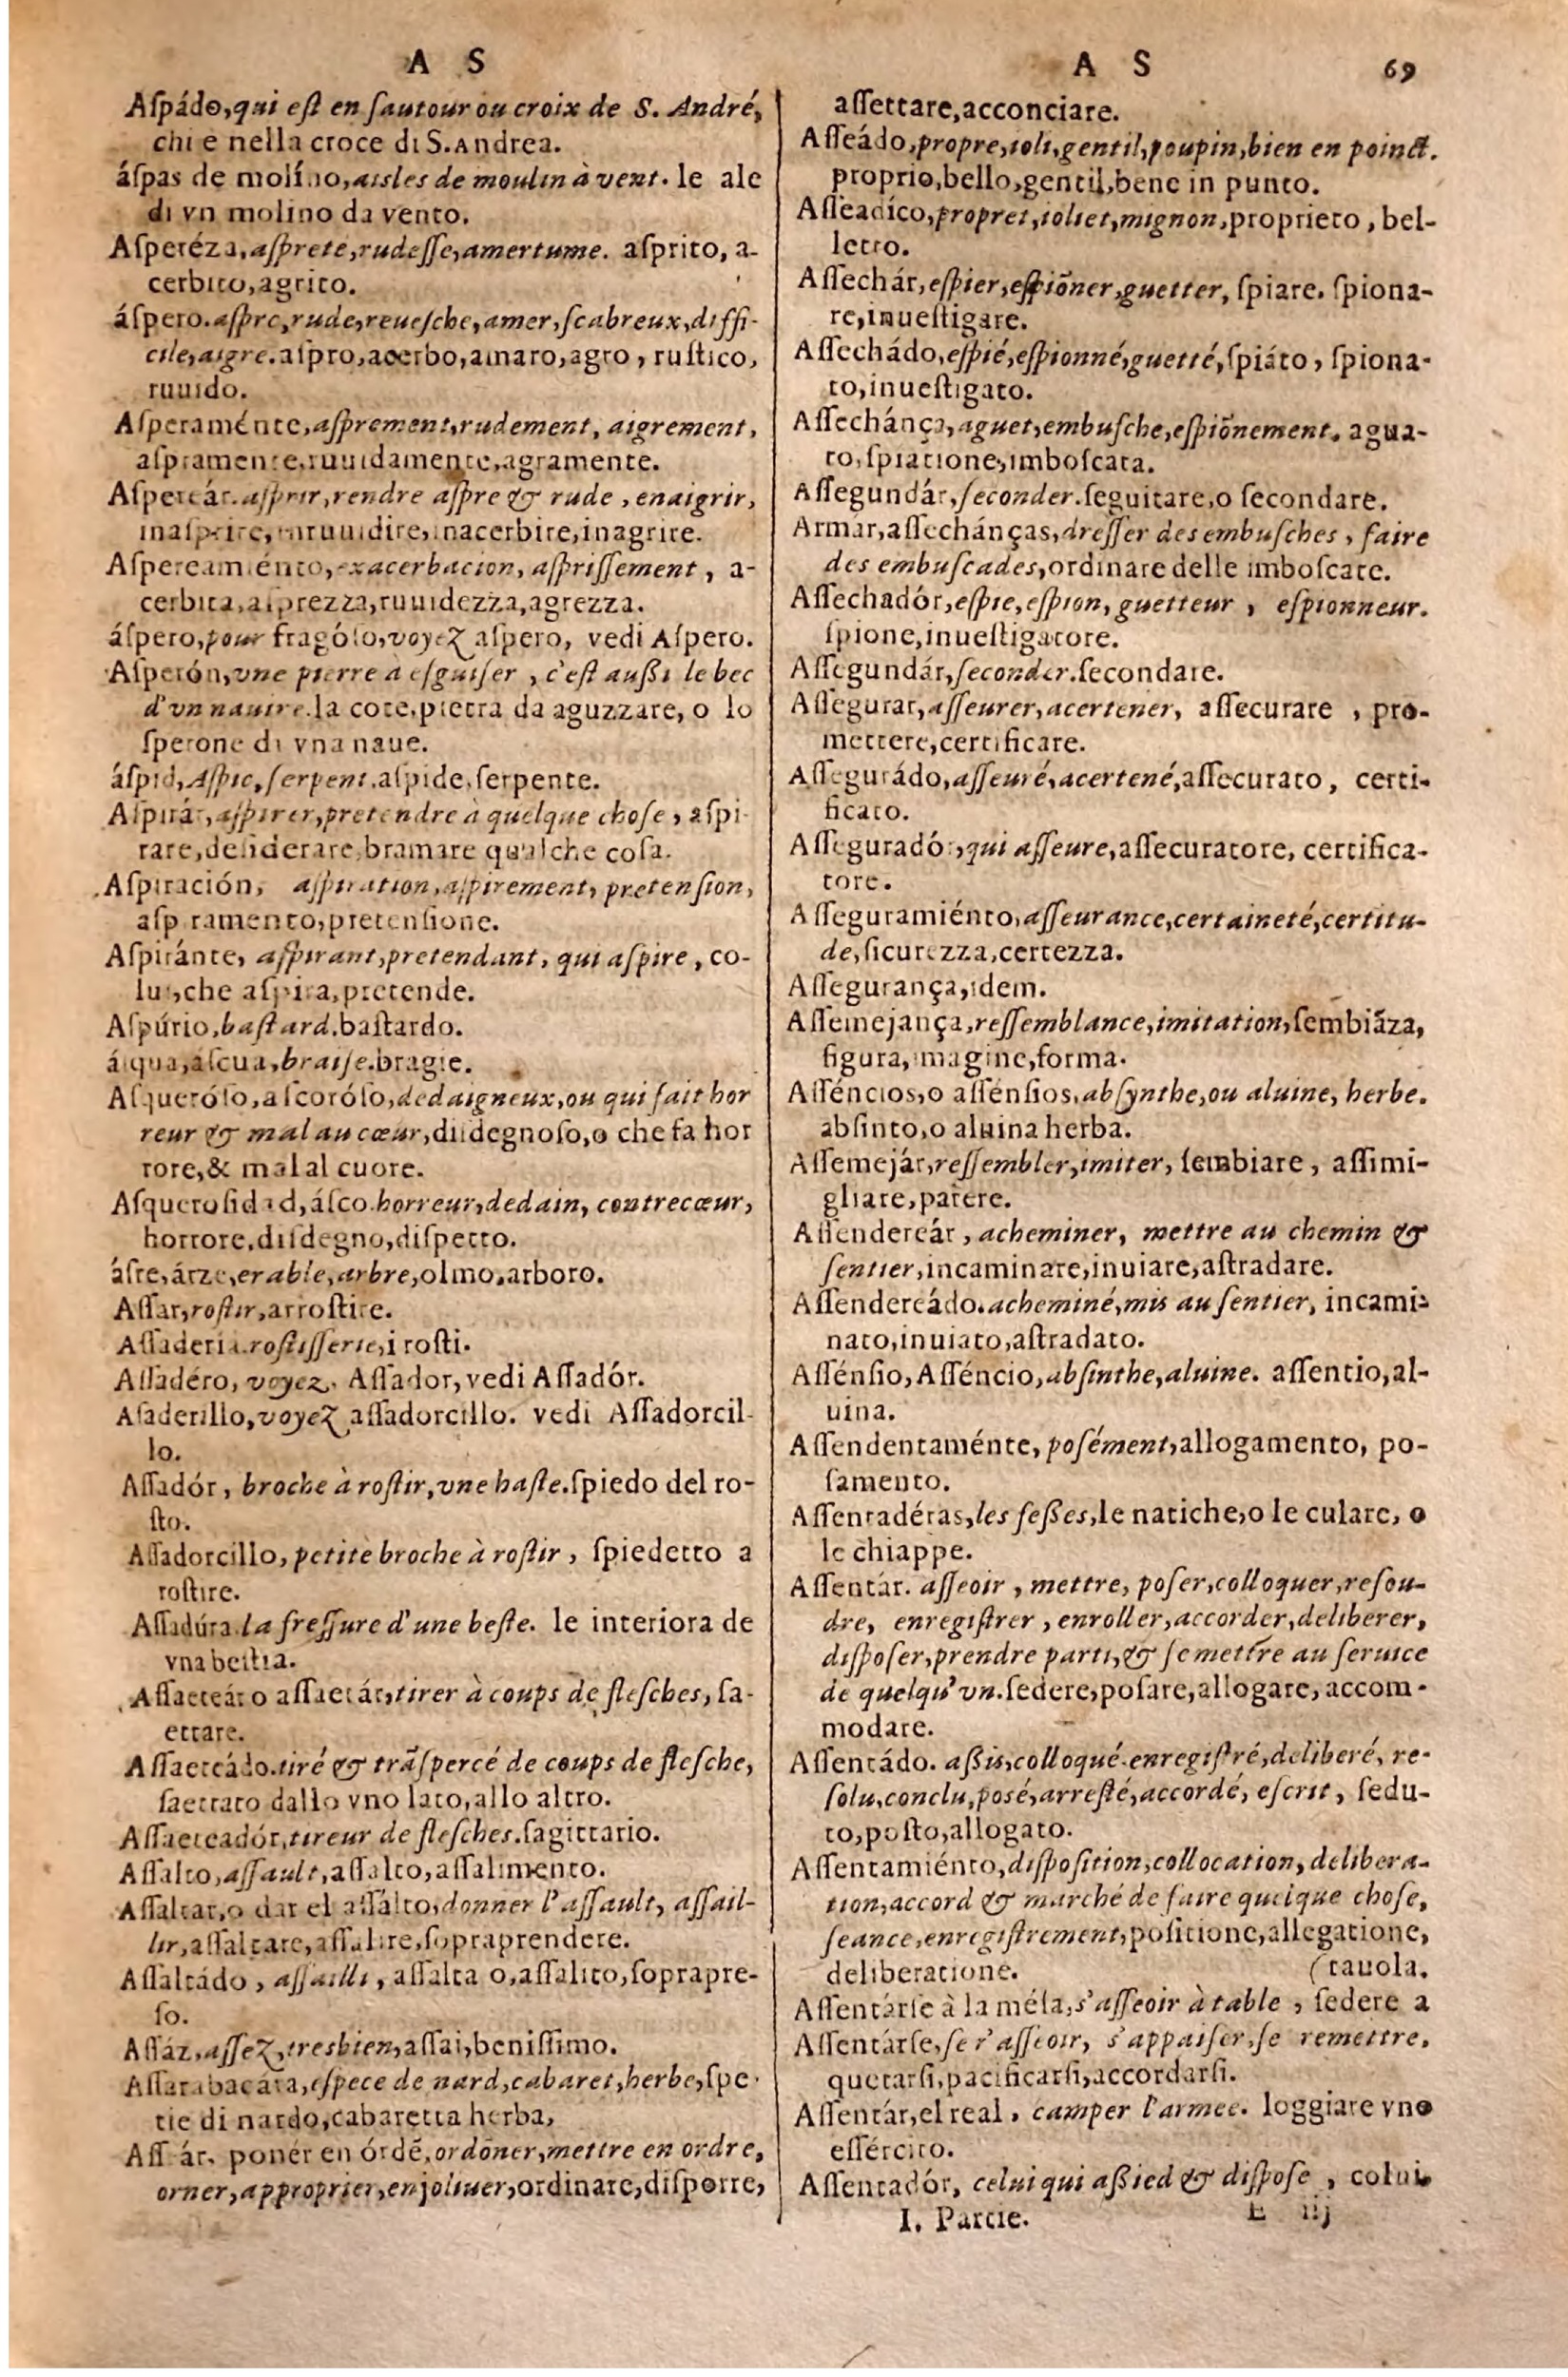 A S
Aſpádo, qui eſt en ſautour ou croix de S. André,
chi e nella croce di S. Andrea.
áſpas de molíno, aisles de moulin à vent. le ale
di vn molino da vento.
Aſperéza, aſpreté, rudeſſe, amertume. aſprito, a-
cerbito, agrito.
áſpero. aſpre, rude, reueſche, amer, ſcabreux, diffi-
cile, aigre. aſpro, acerbo, amaro, agro, ruſtico,
ruuido.
Aſperaménte, aſprement, rudement, aigrement,
aſpramente, ruuidamente, agramente.
Aſpereár. aſprir, rendre aſpre & rude, enaigrir,
inaſprire, inruuidire, inacerbire, inagrire.
Aſpereamiénto, exacerbacion, aſpriſſement, a-
cerbita, aſprezza, ruuidezza, agrezza.
áſpero, pour fragóſo, voyez aſpero, vedi Aſpero.
Aſperón, vne pierre a eſguiſer, c'eſt außi le bec
d'vn nauire. la cote, pietra da aguzzare, o lo
ſperone di vna naue.
áſpid, Aſpic, ſerpent. aſpide, ſerpente.
Aſpirár, aſpirer, pretendre à quelque choſe, aſpi-
rare, deſiderare, bramare qualche coſa.
Aſpiración, aſpiration, aſpirement, pretenſion,
aſpiramento, pretenſione.
Aſpiránte, aſpirant, pretendant, qui aſpire, co-
lui, che aſpira, pretende.
Aſpúrio, baſtard. baſtardo.
áſqua, áſcua, braiſe. bragie.
Aſqueróſo, aſcoróſo, dedaigneux, ou qui fait hor
reur & mal au cœur, diſdegnoſo, o che fa hor
rore, & mal al cuore.
Aſqueroſidad, áſco. horreur, dedain, contrecœur,
horrore, diſdegno, diſpetto.
áſre, árze, erable, arbre, olmo, arboro.
Aſſar, roſtir, arroſtire.
Aſſadería. roſtiſſerie, i roſti.
Aſſadéro, voyez. Aſſador, vedi Aſſadór.
Aſaderillo, voyez aſſadorcillo. vedi Aſſadorcil-
lo.
Aſſadór, broche à roſtir, vne haſte. ſpiedo del ro-
ſto.
Aſſadorcillo, petite broche à roſtir, ſpiedetto a
roſtire.
Aſſadúra. la freſſure d'une beſte. le interiora de
vna beſtia.
Aſſaeteár o aſſaetár, tirer à coups de fleſches, ſa-
ettare.
Aſſaeteádo. tiré & trãſpercé de coups de fleſche,
ſaettato dallo vno lato, allo altro.
Aſſaeteadór, tireur de fleſches. ſagittario.
Aſſalto, aſſault, aſſalto, aſſalimento.
Aſſaltar, o dar el aſſálto, donner l'aſſault, aſſail-
lir, aſſaltare, aſſalire, ſopraprendere.
Aſſaltádo, aſſailli, aſſalta o, aſſalito, ſoprapre-
ſo.
Aſſáz, aſſez, tresbien, aſſai, beniſſimo.
Aſſarabacára, eſpece de nard, cabaret, herbe, ſpe-
tie di nardo, cabaretta herba,
Aſſ ár. ponér en órdẽ, ordõner, mettre en ordre,
orner, approprier, enjoliuer, ordinare, diſporre,
A S 69
aſſettare, acconciare.
Aſſeádo, propre, ioli, gentil, poupin, bien en poinct.
proprio, bello, gentil, bene in punto.
Aſſeadíco, propret, ioliet, mignon, proprieto, bel-
letto.
Aſſechár, eſpier, eſpiõner, guetter, ſpiare. ſpiona-
re, inueſtigare.
Aſſechádo, eſpié, eſpionné, guetté, ſpiáto, ſpiona-
to, inueſtigato.
Aſſechánça, aguet, embuſche, eſpiõnement. agua-
to, ſpiatione, imboſcata.
Aſſegundár, ſeconder. ſeguitare, o ſecondare.
Armar, aſſechánças, dreſſer des embuſches, faire
des embuſcades, ordinare delle imboſcate.
Aſſechadór, eſpie, eſpion, guetteur, eſpionneur.
ſpione, inueſtigatore.
Aſſegundár, ſeconder. ſecondare.
Aſſegurar, aſſeurer, acertener, aſſecurare, pro-
mettere, certificare.
Aſſegurádo, aſſeuré, acertené, aſſecurato, certi-
ficato.
Aſſeguradór, qui aſſeure, aſſecuratore, certifica-
tore.
Aſſeguramiénto, aſſeurance, certaineté, certitu-
de, ſicurezza, certezza.
Aſſegurança, idem.
Aſſemejança, reſſemblance, imitation, ſembiãza,
figura, imagine, forma.
Aſſéncios, o aſſénſios, abſynthe, ou aluine, herbe.
abſinto, o aluina herba.
Aſſemejár, reſſembler, imiter, ſembiare, aſſimi-
gliare, parere.
Aſſendereár, acheminer, mettre au chemin &
ſentier, incaminare, inuiare, aſtradare.
Aſſendereádo. acheminé, mis au ſentier, incami-
nato, inuiato, aſtradato.
Aſſénſio, Aſſéncio, abſinthe, aluine. aſſentio, al-
uina.
Aſſendentaménte, poſément, allogamento, po-
ſamento.
Aſſentadéras, les feßes, le natiche, o le culare, o
le chiappe.
Aſſentár. aſſeoir, mettre, poſer, colloquer, reſou-
dre, enregiſtrer, enroller, accorder, deliberer,
diſpoſer, prendre parti, & ſe mettre au ſeruice
de quelqu'vn. ſedere, poſare, allogare, accom-
modare.
Aſſentádo. aßis, colloqué. enregiſtré, deliberé, re-
ſolu, conclu, poſé, arreſté, accordé, eſcrit, ſedu-
to, poſto, allogato.
Aſſentamiénto, diſpoſition, collocation, delibera-
tion, accord & marché de faire quelque choſe,
ſeance, enregiſtrement, poſitione, allegatione,
deliberatione. (tauola.
Aſſentárſe à la méſa, s'aſſeoir à table, ſedere a
Aſſentárſe, ſe r'aſſeoir, s'appaiſer, ſe remettre.
quetarſi, pacificarſi, accordarſi.
Aſſentár, el real, camper l'armee. loggiare vno
eſſército.
Aſſentadór, celui qui aßied & diſpoſe, colui
I. Partie. E iij